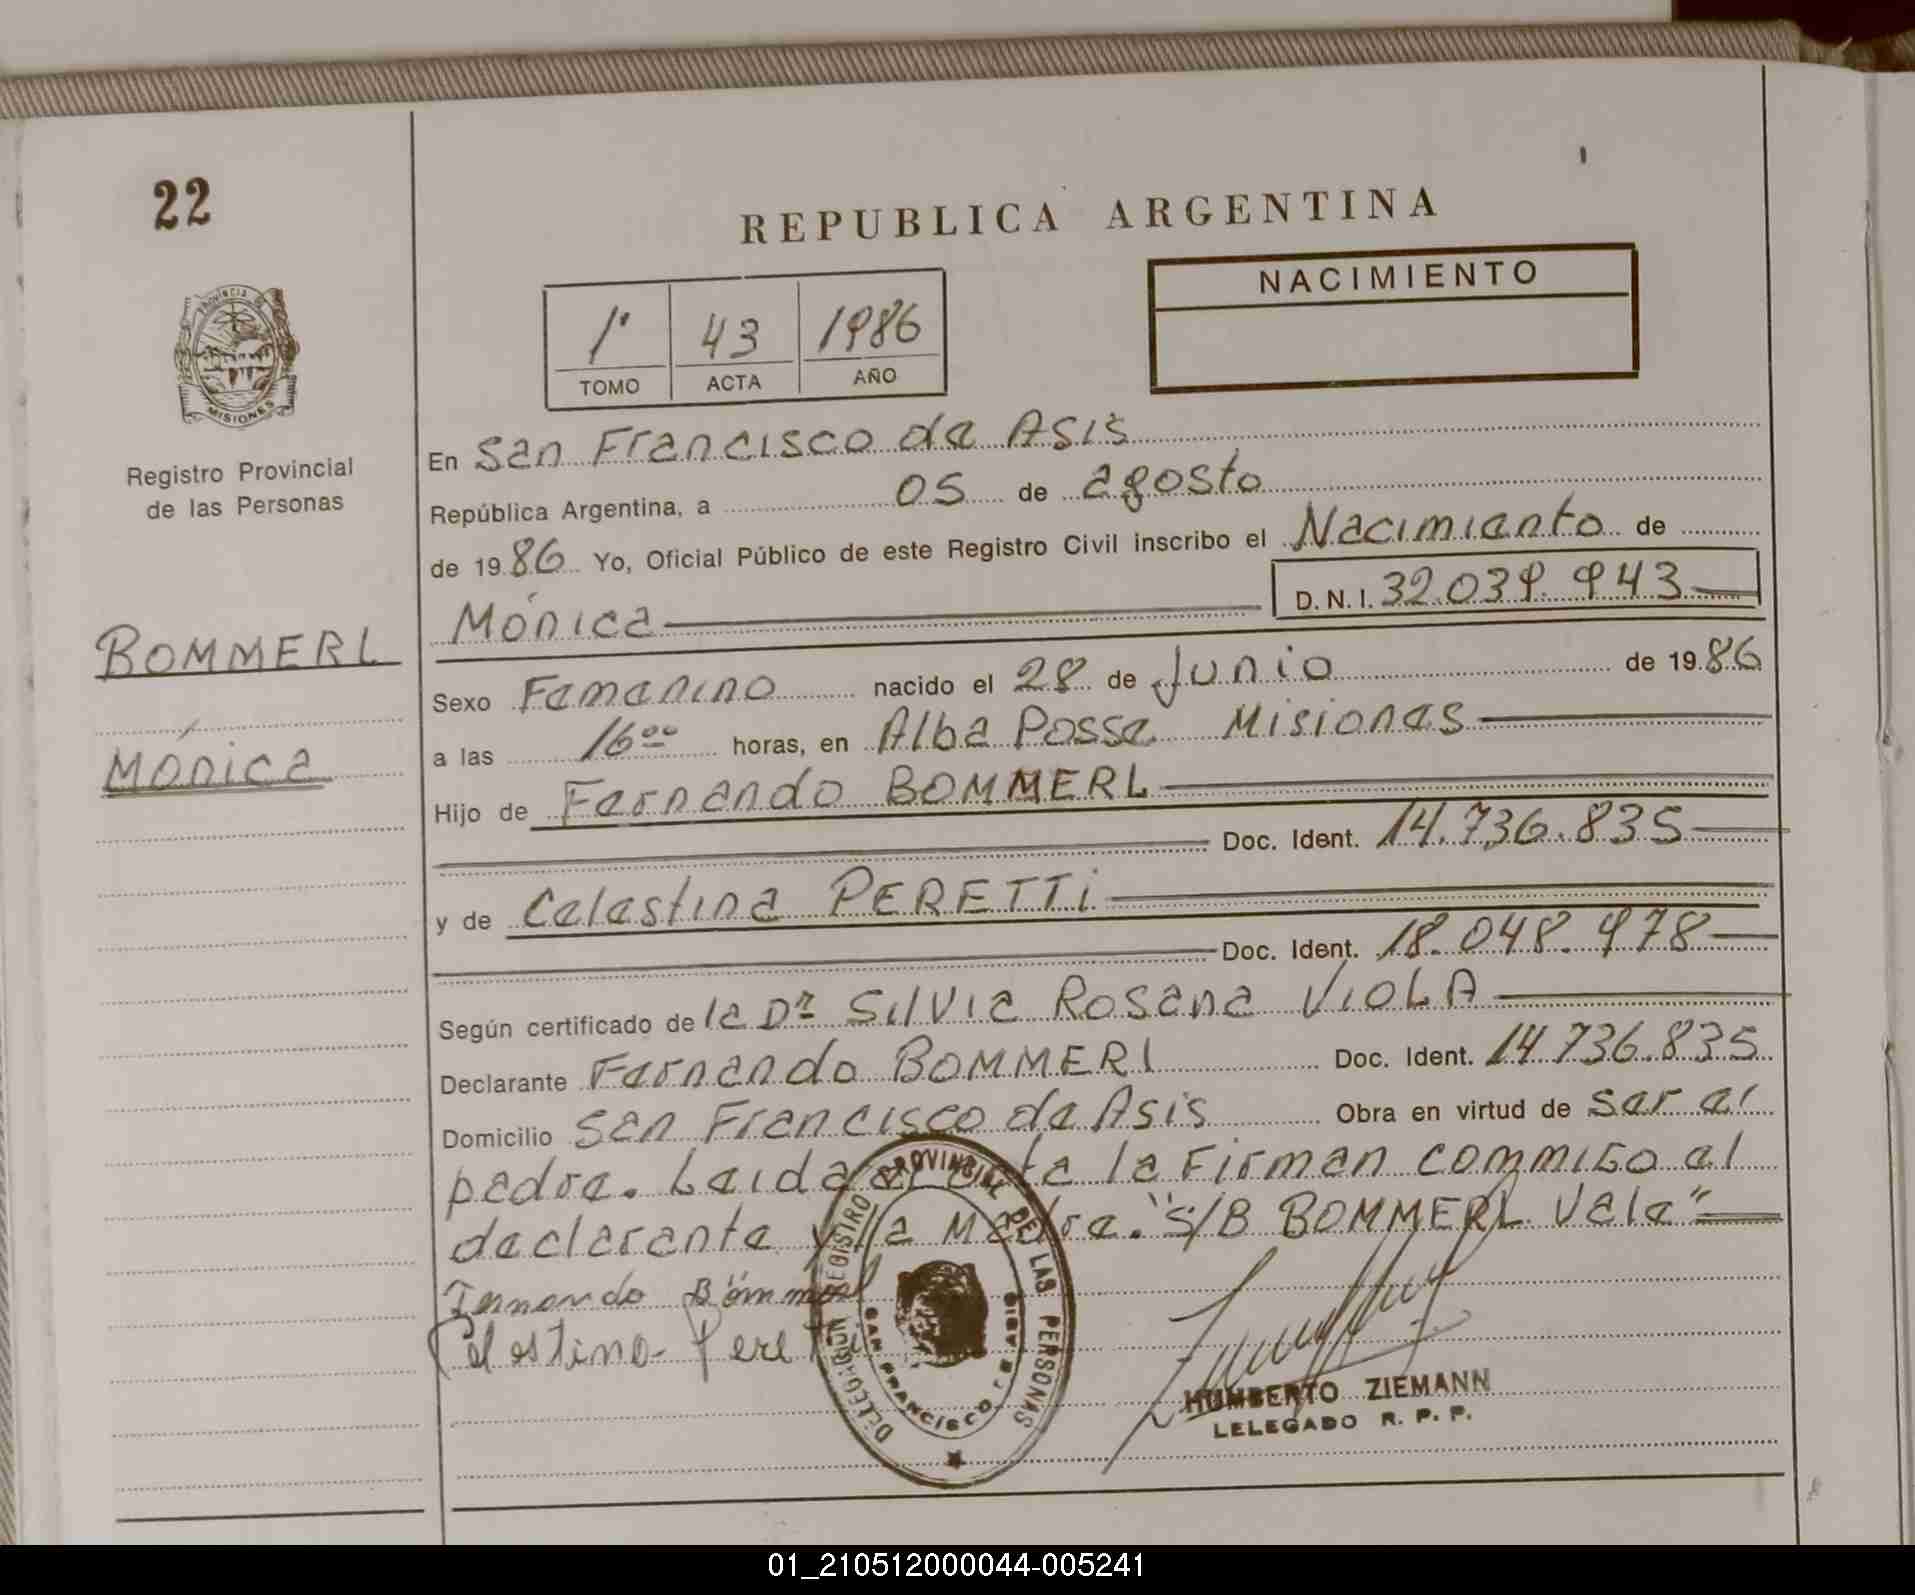 22
REPUBLICA ARGENTINA
NACIMIENTO
1º 43 1986
TOMO ACTA AÑO
PROVINCIA DE
MISIONES
Registro Provincial
de las Personas
BOMMERL
Mónica
En San Francisco de Asis
República Argentina, a 05 de agosto
de 1986 Yo, Oficial Público de este Registro Civil inscribo el Nacimiento de
Mónica D.N.I. 32.039.943
Sexo Femenino nacido el 28 de Junio de 1986
a las 16ºº horas, en Alba Posse Misiones
Hijo de Fernando BOMMERL
Doc. Ident. 14.736.835
y de Celestina PERETTi
Doc. Ident. 18.048.978
Según certificado de la Drª Silvia Rosana VIOLA
Declarante Fernando BOMMERl Doc. Ident. 14.736.835
Domicilio San Francisco de Asis Obra en virtud de ser el
padre. Leida el acta la Firman commigo el
declarante y la Madre. "S/B BOMMERL Vale"
Fernando Bömmerl
Celestina Peretti
DELEGACION REGISTRO PROVINCIAL DE LAS PERSONAS
SAN FRANCISCO DE ASIS
HUMBERTO ZIEMANN
LELEGADO R. P. P.
01_210512000044-005241